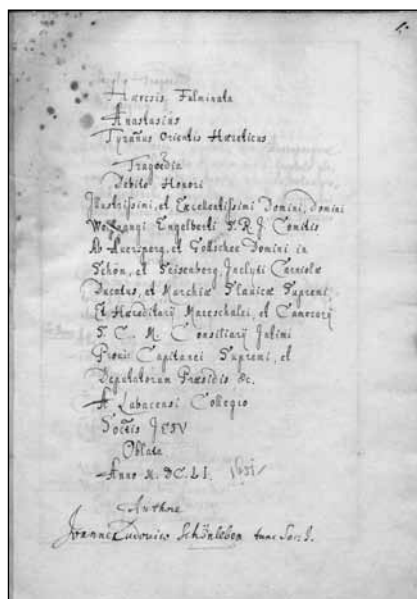 1.
Hæresis Fulminata
Anastasius
Tyrañus Orientis Hæreticus
Tragœdia
Debito Honori
Illustrissimi, et Excellentissimi Domini, Domini
Wolfgangi Engelberti S. R. J. Comitis
Ab Auersperg, et Gottschee Domini in
Schön, et Seisenberg, Incluti Carniolæ
Ducatus, et Marchiæ Slavicæ Supremi
Et Hæreditarij Mareschalci, et Camerarij
S. C. M. Consiliarij Intimi
Prouin: Capitanei Supremi, et
Deputatorum Præsidis &c.
A Labacensi Collegio
Soctis JESV
Oblata
Anno M. DC. LI. 1651
Authore
Joanne Ludouico Schönleben tunc Soc: J.